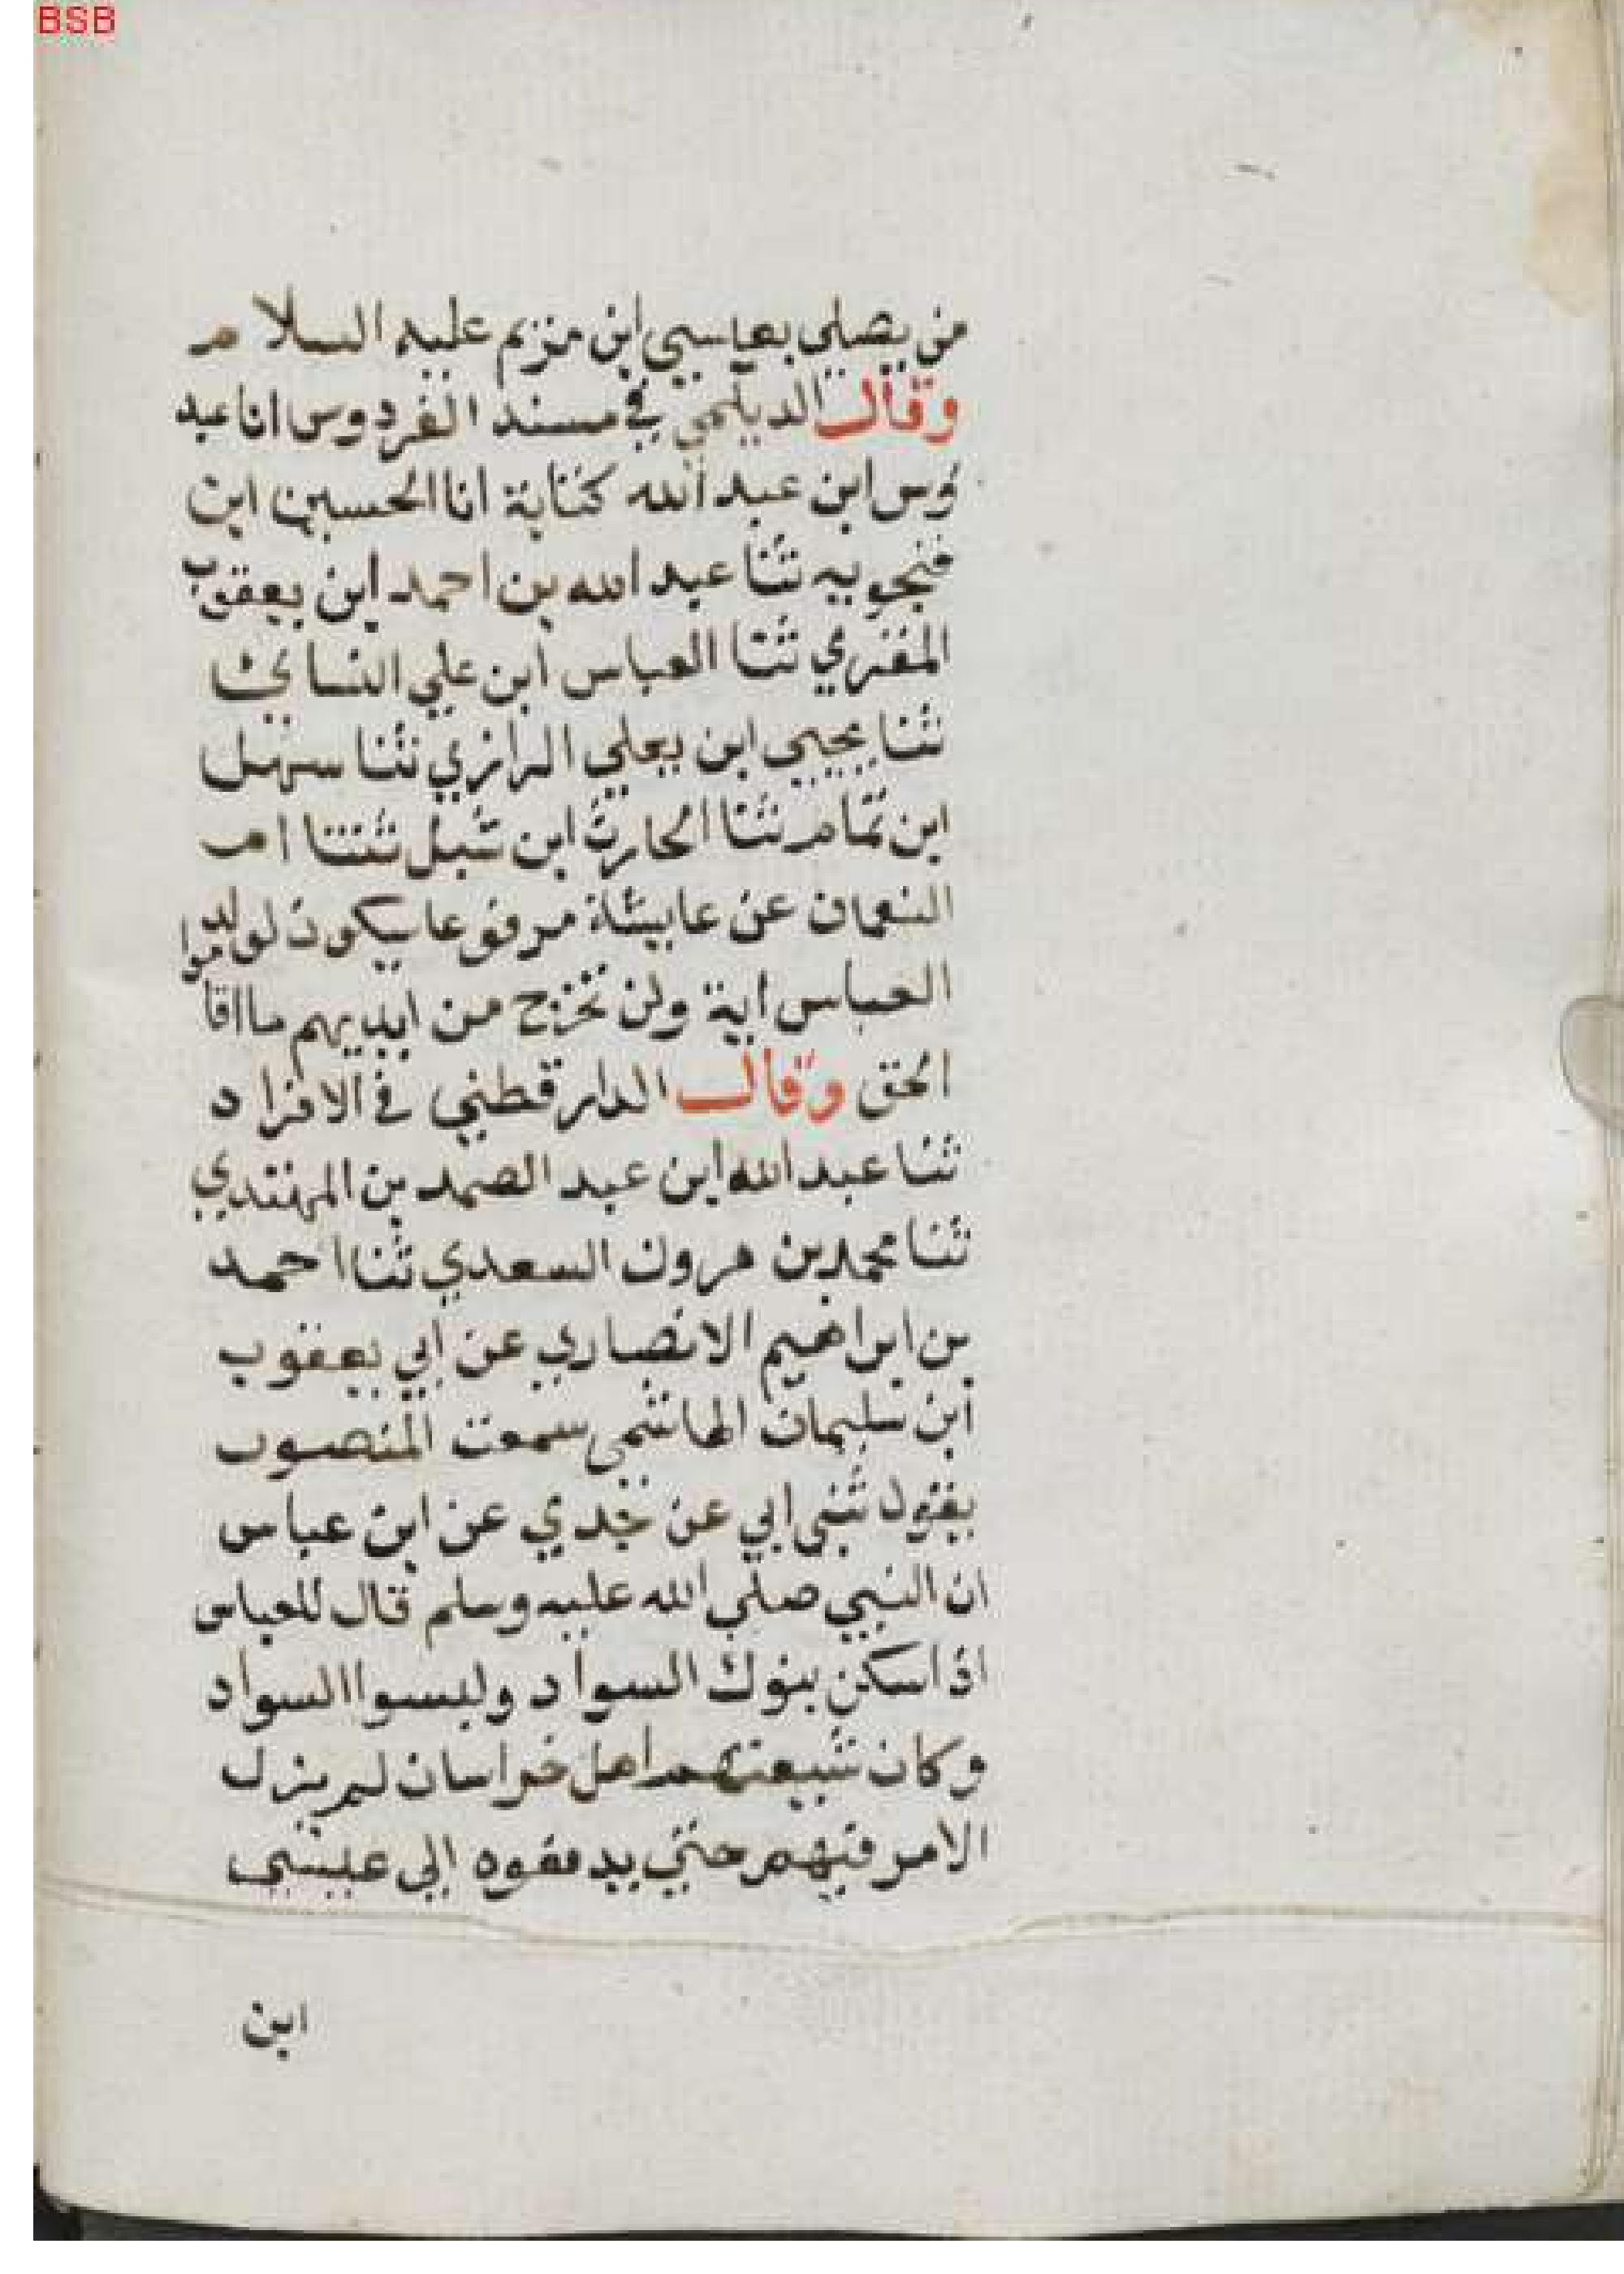 BSB
من يصلي بعيسي ابن مريم عليه السلام
وقال الديلمي في مسند الفردوس انا عبد
وس ابن عبد الله كتابة انا الحسين ابن
فنجويه ثنا عبد الله بن احمد ابن يعقوب
المقري ثنا العباس ابن علي النسائي
ثنا يحيي ابن يعلي الرازي ثنا سهل
ابن تمام ثنا الحارث ابن شبل ثتنا ام
النعمان عن عايشة مرفوعا سيكون لولد
العباس اية ولن تخرج من ايديهم ما اقاموا
الحق وقال الدارقطني في الافراد
ثنا عبد الله ابن عبد الصمد بن المهتدي
ثنا محمد بن هرون السعدي ثنا احمد
بن ابراهيم الانصاري عن ابي يعقوب
ابن سليمان الهاشمي سمعت المنصوب
يقول ثني ابي عن جدي عن ابن عباس
ان النبي صلي الله عليه وسلم قال للعباس
اذا سكن بنوك السواد ولبسوا السواد
وكان شيعتهم اهل خراسان لم يزل
الامر فيهم حتي يدفعوه الي عيسي
ابن